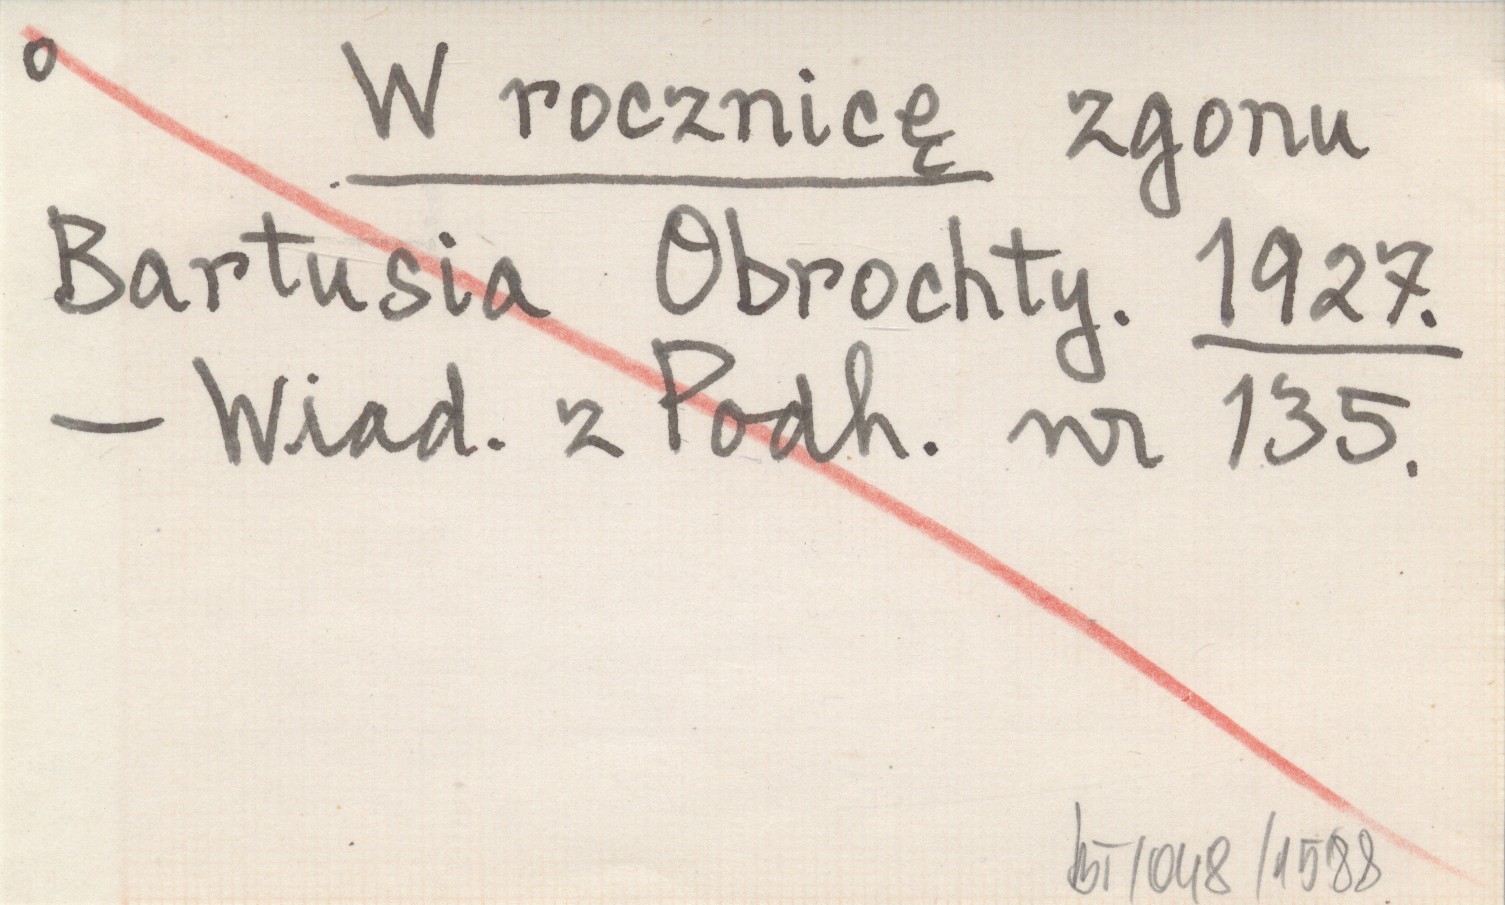 o W rocznicę zgonu
Bartusia Obrochty. 1927.
— Wiad. z Podh. nr 135.
BT/048/1588